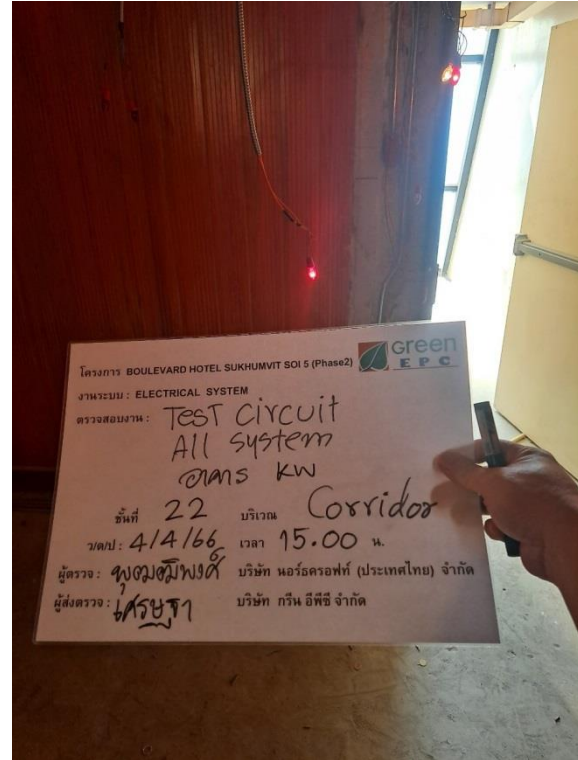 โครงการ BOULEVARD HOTEL SUKHUMVIT SOI 5 (Phase2) Green EPC
งานระบบ : ELECTRICAL SYSTEM
ตรวจสอบงาน : TEST Circuit
All system
อาคาร KW
ชั้นที่ 22 บริเวณ Corridor
ว/ด/ป : 4/4/66 เวลา 15.00 น.
ผู้ตรวจ : บริษัท นอร์ธครอฟท์ (ประเทศไทย) จำกัด
ผู้ส่งตรวจ : เศรษฐา บริษัท กรีน อีพีซี จำกัด